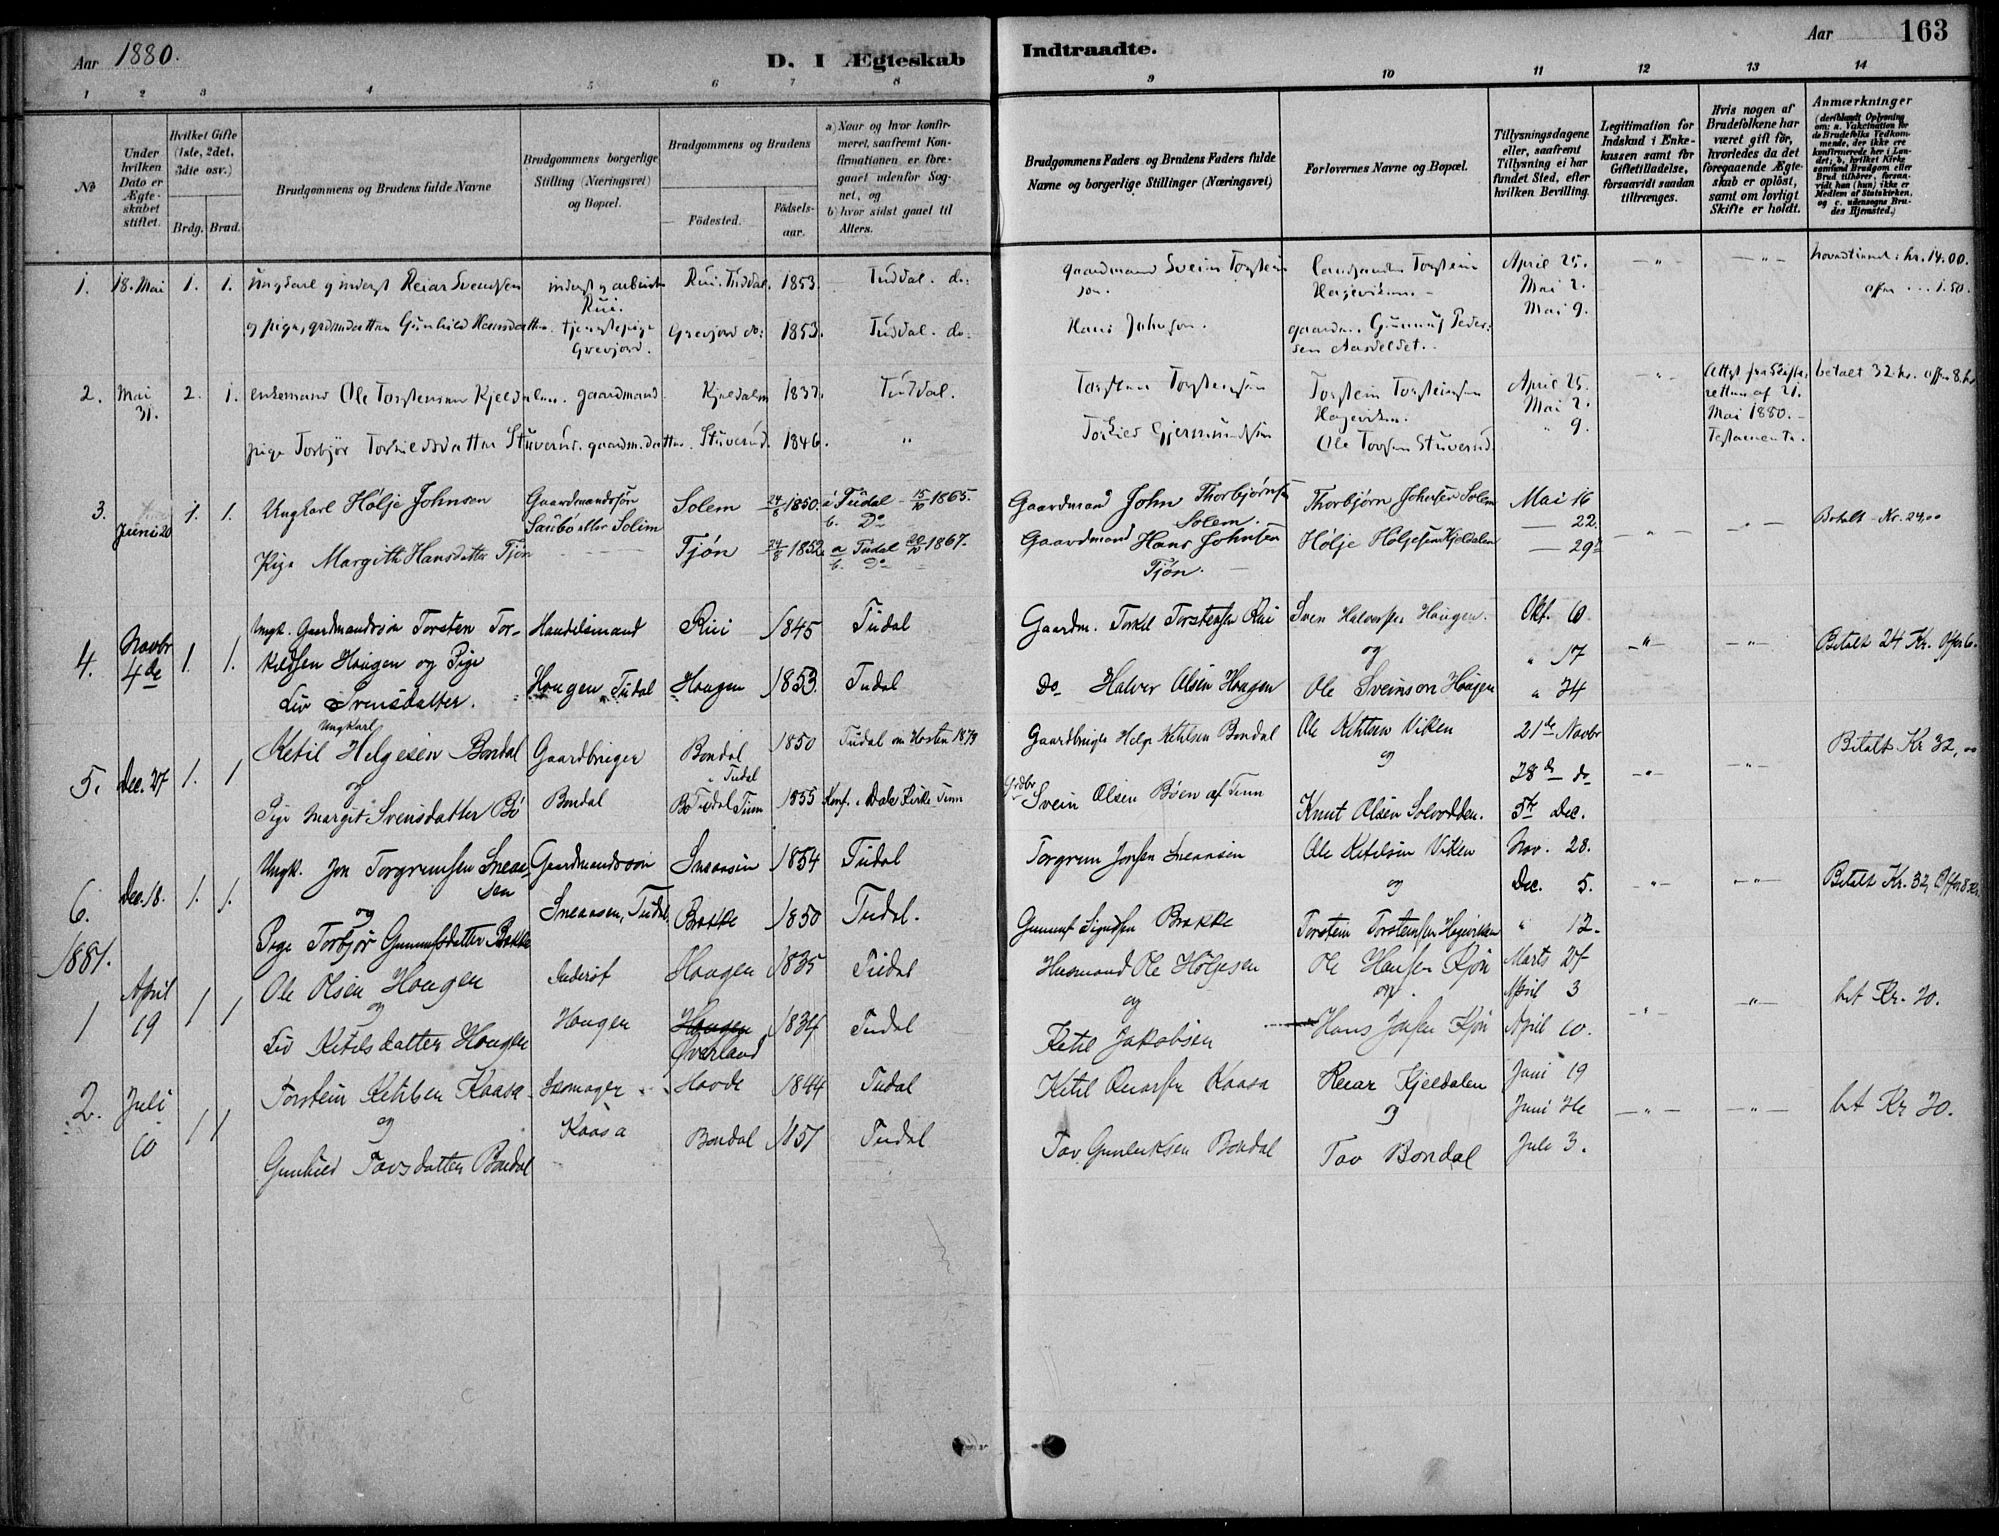 Aar 1880.
D. I Ægteskab
Indtraadte.
Aar
163
1 2 3 4 5 6 7 8 9 10 11 12 13 14
No
Under hvilken Dato er Ægteskabet stiftet.
Hvilket Gifte (1ste, 2det, 3dte osv.)
Brdg. Brud.
Brudgommens og Brudens fulde Navne
Brudgommens borgerlige Stilling (Næringsvei) og Bopæl.
Brudgommens og Brudens
Födested.
Födselsaar.
a) Naar og hvor konfirmeret, saafremt Konfirmationen er foregaaet udenfor Sognet, og
b) hvor sidst gaaet til Alters.
Brudgommens Faders og Brudens Faders fulde Navne og borgerlige Stillinger (Næringsvei)
Forlovernes Navne og Bopæl.
Tillysningsdagene eller, saafremt Tillysning ei har fundet Sted, efter hvilken Bevilling.
Legitimation for Indskud i Enkekassen samt for Giftetilladelse, forsaavidt saadan tiltrænges.
Hvis nogen af Brudefolkene har været gift för, hvorledes da det foregaaende Ægteskab er oplöst, samt om lovligt Skifte er holdt.
Anmærkninger (deriblandt Oplysning om: a. Vakcination for de Brudefolks Vedkommende, der ikke ere konfirmerede her i Landet; b. hvilket Kirkesamfund Brudgom eller Brud tilhörer, forsaavidt han (hun) ikke er Medlem af Statskirken, og c. udensogns Brudes Hjemsted.)
1. 18. Mai 1. 1. Ungkarl og inderst Reiar Svendsen inderst og arbeider Rui. Rui. Tuddal. 1853. Tuddal. do: gaardmand Svein Torstein son. Torstein Hægeviken. April 25. Mai 2. Mai 9. -"- -"- hr. 14.00. offer ... 1.50.
og pige, Gunhild Hansdatter. tjenestepige Grevjord. Grevjord do: 1853. Tuddal. do: Hans Johnsen. gaardm. Gunnuf Pedersen
2. Mai 31. 2. 1. enkemand Ole Torstensen Kjeldalen. gaardmand. Kjeldalen 1837. Tuddal. Torsten Torsteinsen Torstein Torsteinsen Hægeviken. April 25. Mai 2. " 9. -"- Attest fra Skifteretten af 21. Mai 1880. - Testamente. betalt 32 kr. offer 8 kr.
pige Torbjør Torkildsdatter Stuverud. gaardm. datter. Stuverud. 1846. " Torkild Gjermundsen Ole Stuverud.
3. Juni 20 1. 1. Ungkarl Hølje Johnsen Gaardmandssøn Saubø eller Solem Solem 24/8 1850. Tudal - 15/10 1865. b. Do Gaardmand John Thorbjørnsen Solem. Thorbjørn Johnsen Solem Mai 16 — 22. — 29de -"- -"- Betalt - Kr. 24,00
Pige Margith Hansdatter Tjøn Tjøn 24/8 1852 a Tudal 1867. b. Do Gaardmand Hans Johnsen Tjøn. Hølje Høljesen Kjeldalen
4. Novbr 4de 1. 1. Ungk. Gaardmandssøn Torsten Tor- Handelsmand Rui 1845 Tudal Gaardm. Torkil Torstensen Rui Sven Halvorsen Haugen. Okt. 10
kildsen Haugen og Pige og " 17 -"- -"- Betalt 24 Kr. Offer 6.
Liv Svensdatter. Haugen, Tudal Haugen 1853. Tudal Do Halvor Olsen Haugen Ole Sveinson Haugen " 24
5. Dec. 27 1. 1 Ungkarl Ketil Helgesen Bondal Gaardbruger Bondal 1850 Tudal om Høsten 1879 Gaardbruger Helge Ketilsen Bondal Ole Ketilsen Viken 21de Novbr Betalt Kr 32,00
og Bondal i Tudal og 28de do -"- -"-
Pige Margit Svensdatter Bø Bø Tudal Tinn 1855 Konf. i Dale Kirke Tinn Grdbr Svein Olsen Bøen af Tinn Knut Olsen 5te Dec.
6. Dec. 18. 1. 1. Ungk. Jon Torgrimsen Sneaasen Gaardmandssøn Sneaasen, Tudal. Sneaasen 1854 Tudal Torgrim Jonsen Sneaasen Ole Ketilsen Viken Nov. 28. Dec. 5. -"- -"- Betalt Kr. 32, Offer 8 Kr.
og
Pige Torbjør Gunnufsdatter Bakke Bakke 1850 Tudal. Gunnuf Bakke og Torstein Torsteinsen Hægeviken " 12.
1881.
1 April 19 1 1 Ole Olsen Haugen Inderst Haugen 1835 Tudal Husmand Ole Høljesen Ole Hansen Tjøn Marts 27
og og og. April 3 -"- -"- bet Kr. 20.
Liv Ketilsdatter Haugen Haugen Haugen Øverland 1834 Tudal Ketil Jakobsen Hans Jonsen Tjøn April 10.
2. Juli 10 1 1 Torstein Ketilsen Kaasa Skomager Hovde 1844 Tudal Ketil Reiarsen Kaasa Reiar Kjeldalen Juni 19
og Kaasa og Juni 26 -"- -"- bet Kr 20.
Gunhild Tovsdatter Bondal Bondal 1857 Tudal Tov Gunleiksen Bondal Tov Bondal Juli 3.